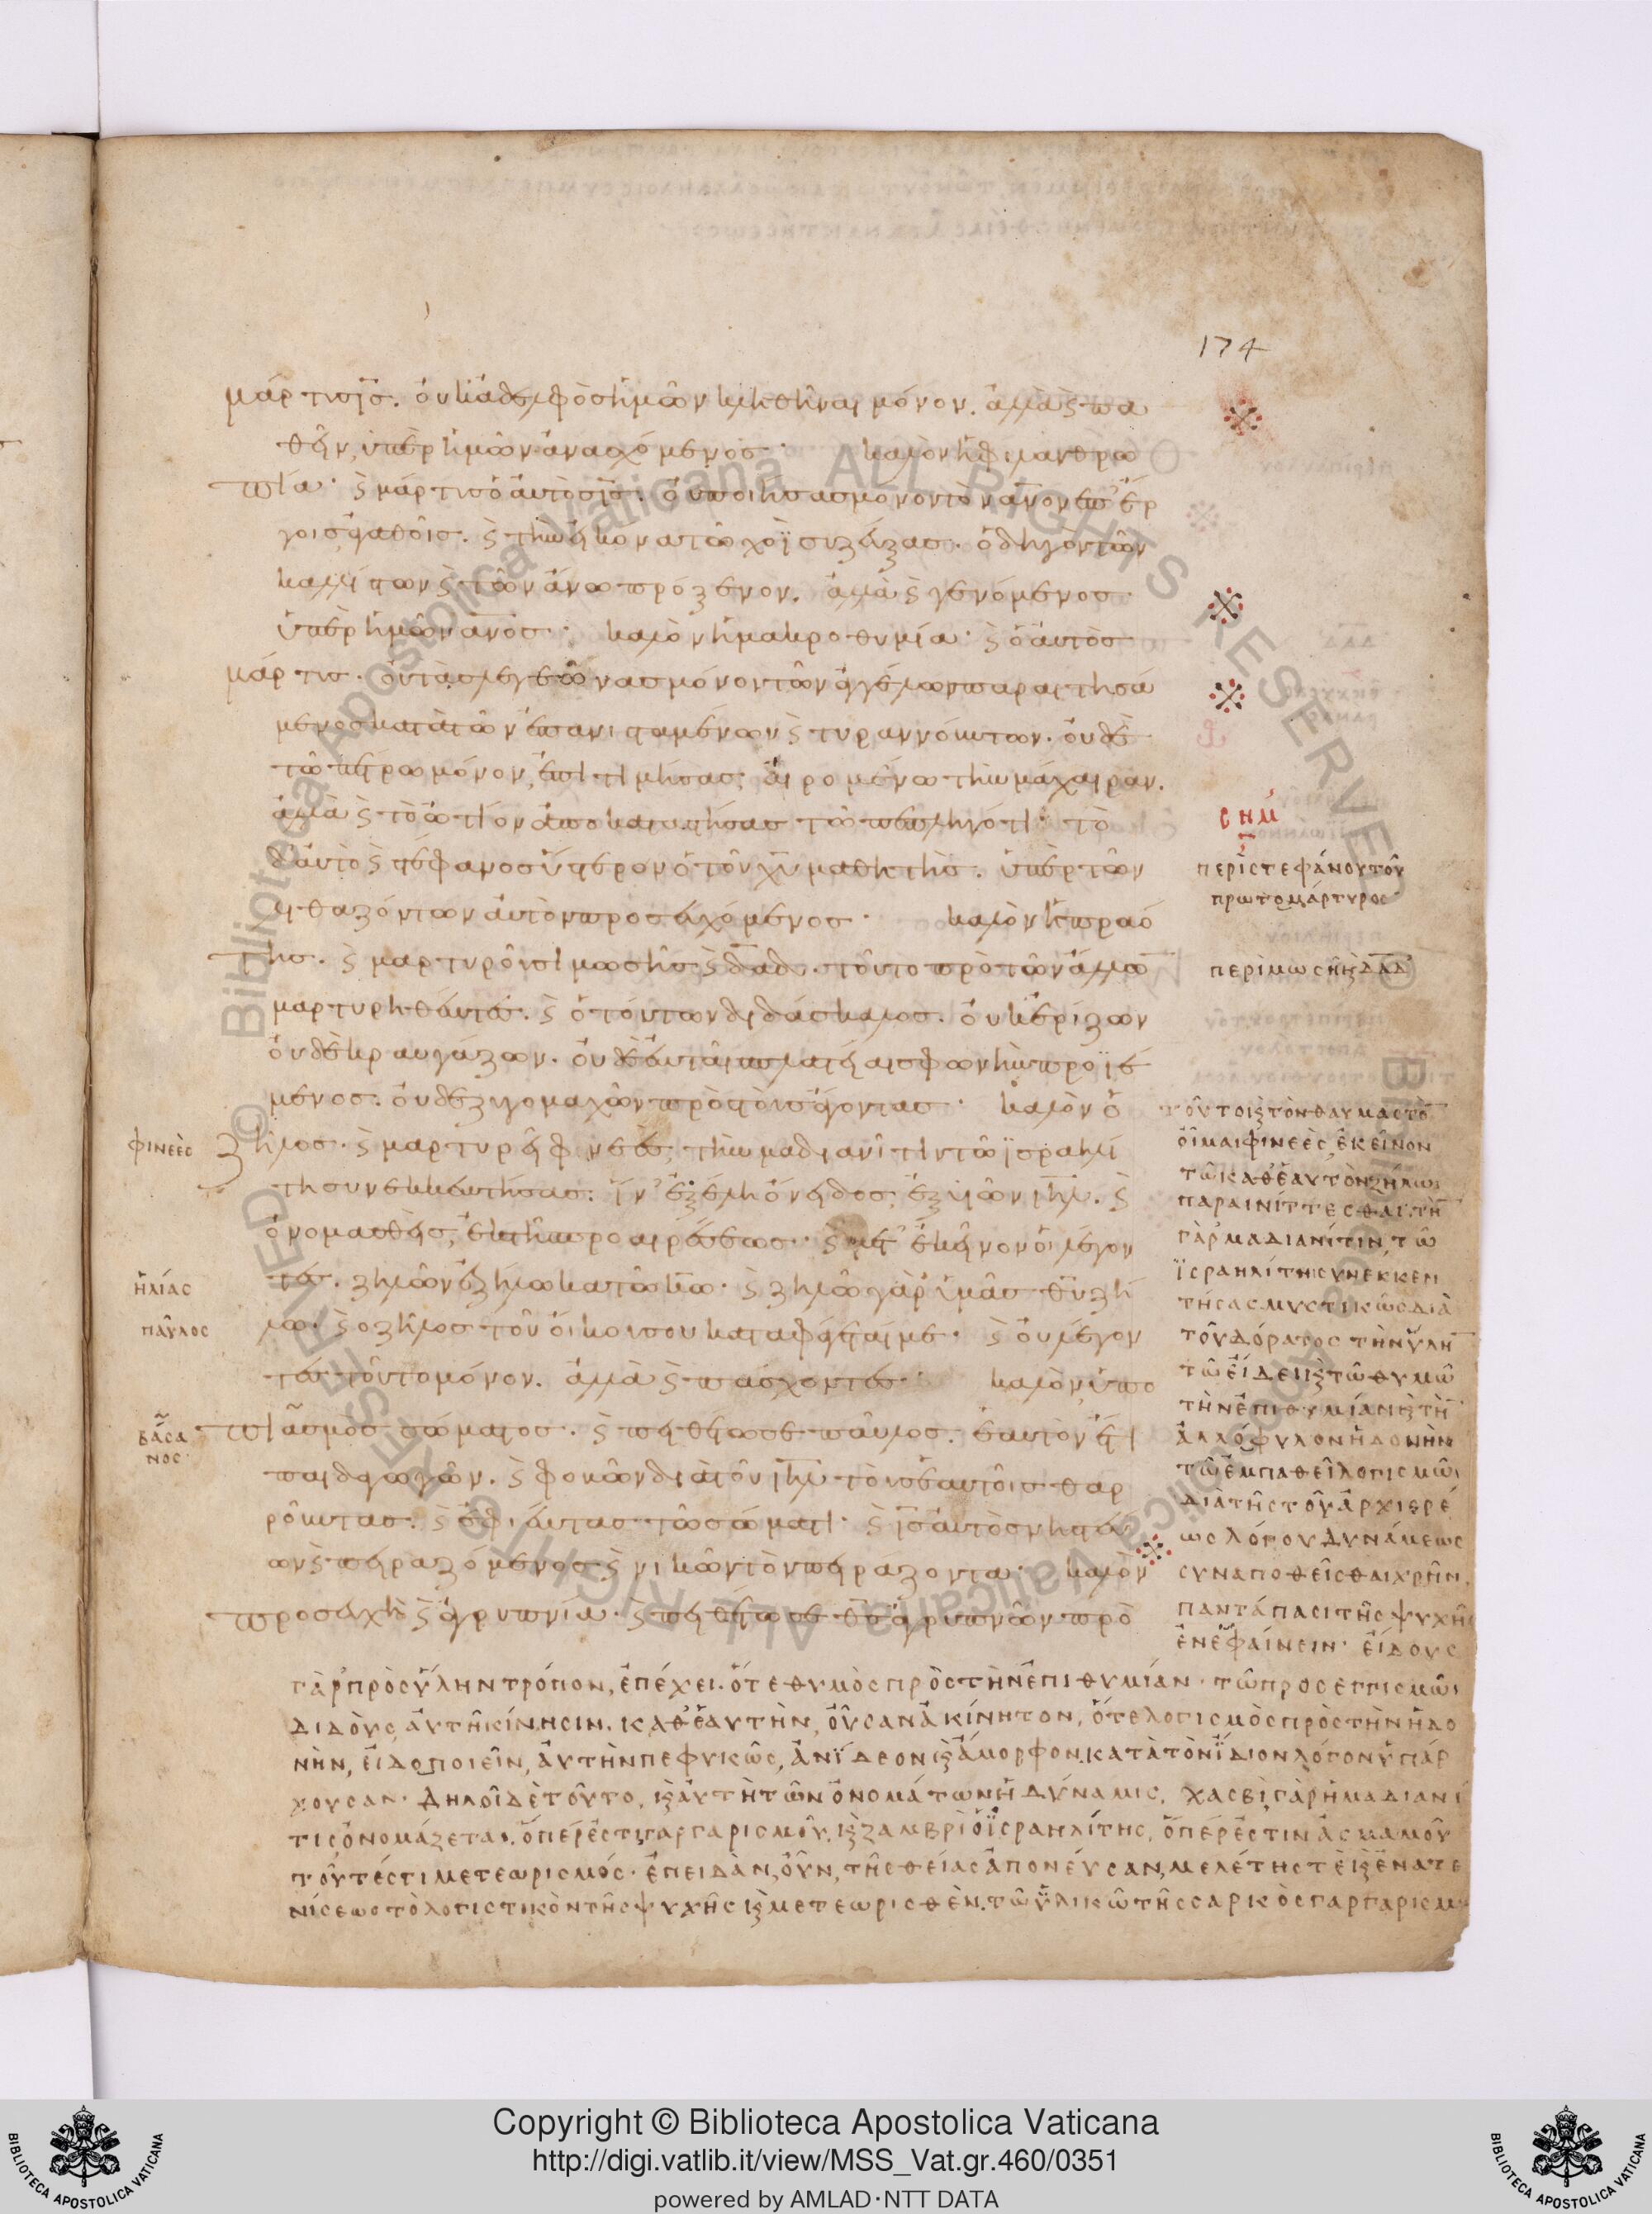 174
μάρτυς ῑς. οὐκ ἀδελφὸς ἡμῶν κληθῆναι μόνον. ἀλλὰ ϗ πα
θεῖν, ὑπὲρ ἡμῶν ἀνασχόμενος· καλὸν ἡ φιλανθρω
πία· ϗ μάρτυς ὁ αὐτὸς ῑς. οὐ ποιήσας μόνον τὸν ᾱνον ἐπ' ἔρ
γοις ἀγαθοῖς. ϗ τὴν εἰκόνα τῶ χοῒ συζεύξας. ὁδηγὸν τῶν
καλλίστων ϗ τῶν ἄνω πρόξενον. ἀλλὰ ϗ γενόμενος
ὑπὲρ ἡμῶν ᾱνος· καλὸν ἡ μακροθυμία· ϗ ὁ αὐτὸς
μάρτυς. οὐ τὰς λεγεῶνας μόνον τῶν ἀγγέλων παραιτησά
μενος κατὰ τῶν ἐπανισταμένων ϗ τυραννούντων. οὐδὲ
τῶ πέτρω μόνον, ἐπιτιμήσας, αἰρομένω τὴν μάχαιραν.
ἀλλὰ ϗ τὸ ὠτίον ἀποκαταστήσας τῶ πεπληγότι· τὸ
δ' αὐτὸ ϗ στέφανος ὕστερον ὁ τοῦ χ̄υ μαθητὴς. ὑπὲρ τῶν
λιθαζόντων αὐτὸν προσευχόμενος· καλὸν ἡ πραό
της. ϗ μαρτυροῦσι μωσῆς ϗ δ̄αδ. τοῦτο πρὸ τῶν ἄλλω
μαρτυρηθέντες. ϗ ὁ τούτων διδάσκαλος. οὐκ ἐρίζων
οὐδὲ κραυγάζων. οὐδὲ ἐν ταῖς πλατείαις φωνὴν προϊέ
μενος. οὐδὲ ζυγομαχῶν πρὸς τοὺς ἄγοντας· καλὸν ὁ
ζῆλος. ϗ μαρτυρεῖ φινεὲς, τὴν μαδιανῖτιν τῶ ϊσραηλί
τη συνεκκεντήσας. ἵν' ἐξέλη ὄνειδος, ἐξ υἱῶν ῑηλ. ϗ
ὀνομασθεὶς, ἐκ τῆς προαιρέσεως· ϗ μετ' ἐκεῖνον οἱ λέγον
τες. ζηλῶν ἐζήλωκα τῶ κ̄ω· ϗ ζηλῶ γὰρ ὑμᾶς θ̄υ ζή
λω. ϗ ὁ ζῆλος τοῦ οἴκου σου καταφάγεταί με. ϗ οὐ λέγον
τες τοῦτο μόνον. ἀλλὰ ϗ πάσχοντες· καλὸν ὑπω
πιασμὸς σώματος. ϗ πειθέτω σε παῦλος. ἑαυτὸν ἔτι
παιδαγωγῶν. ϗ φοβῶν διὰ τοῦ ῑηλ τοὺς ἑαυτοῖς θαρ
ροῦντας. ϗ ἐφιέντας τῶ σώματι· ϗ ῑς αὐτὸς νηστεύ
ων ϗ πειραζόμενος ϗ νικῶν τὸν πειράζοντα· καλὸν
προσευχὴ ϗ ἀγρυπνία· ϗ πειθέτω σε θ̄ς ἀγρυπνῶν πρὸ
φινεὲς
ἠλίας
παῦλος
βάσα
νος
σημ
περὶ στεφάνου τοῦ
πρωτομάρτυρος
περὶ μωσῆ ϗ δ̄αδ
τοῦτοις τὸν θαυμαστὸ
οἶμαι φινεὲς ἐκεῖνον
τῶ καθ' ἑαυτὸν ζήλω
παραινίττεσθαι. τὴ
γὰρ μαδιανίτιν, τῶ
ϊσραηλίτη συνεκκεν
τήσας μυστικῶς διὰ
τοῦ δόρατος τὴν ὕλη
τῶ εἴδει ϗ τῶ θυμῶ
τὴν ἐπιθυμίαν ϗ τὴ
ἀλλόφυλον ἡδονὴν
τῶ ἐμπαθεῖ λογισμῶι
διὰ τῆς τοῦ ἀρχιερέ
ως λόγου δυνάμεως
συναποθεῖσθαι χρῆν,
παντάπασι τῆς ψυχῆς
ἐνέφαίνειν· εἴδους
γὰρ πρὸς ὕλην τρόπον, ἐπέχει. ὅτε θυμὸς πρὸς τὴν ἐπιθυμίαν· τῶ προσεγγισμῶι
διδοὺς αὐτῆ κίνησιν. καθ' ἑαυτὴν, οὖσαν ἀκίνητον, ὅτε λογισμὸς πρὸς τὴν ἡδο
νὴν, εἰδοποιεῖν, αὐτὴν πεφυκῶς, ἀνΐδεον ϗ ἄμορφον. κατὰ τὸν ἴδιον λόγον ὑπάρ
χουσαν· δηλοῖ δὲ τοῦτο, ϗ αὐτὴ τῶν ὀνομάτων ἡ δύναμις, χασβὶ γὰρ ἡ μαδιανί
τις ὀνομάζεται, ὅπερ ἐστι γαργαρισμοῦ. ϗ ζαμβρὶ ὁ ϊσραηλίτης, ὅπερ ἐστιν ἆσμα μοῦ
τοῦτέστι μετεωρισμός· ἐπειδὰν, οὖν, τῆς θείας ἀπονεύσαν, μελέτης τὲ ϗ ἐνατε
νίσεως τὸ λογιστικὸν τῆς ψυχῆς ϗ μετεωρισθὲν. τῶ ὑλικῶ τῆς σαρκὸς γαργαρισμ
Copyright © Biblioteca Apostolica Vaticana
http://digi.vatlib.it/view/MSS_Vat.gr.460/0351
powered by AMLAD·NTT DATA
BIBLIOTECA APOSTOLICA VATICANA
BIBLIOTECA APOSTOLICA VATICANA